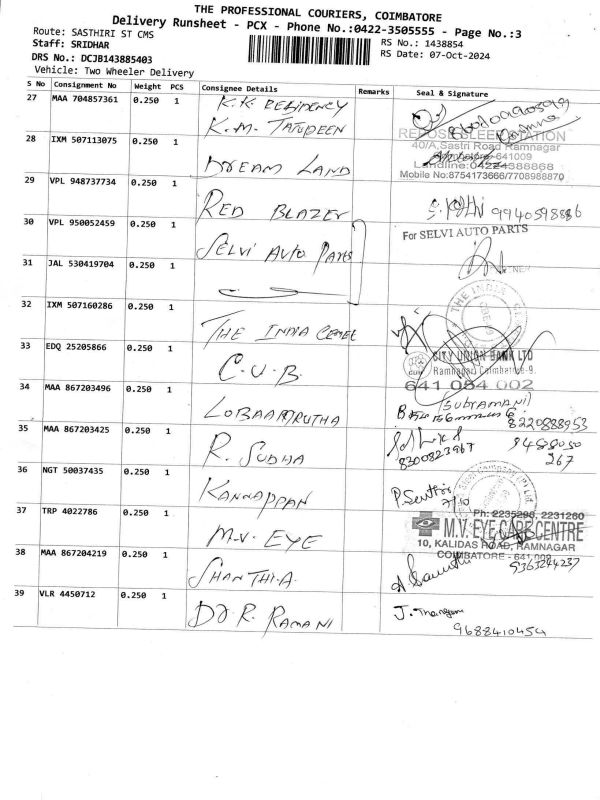 THE PROFESSIONAL COURIERS, COIMBATORE
Delivery Runsheet - PCX - Phone No.:0422-3505555 - Page No.:3
Route: SASTHIRI ST CMS
Staff: SRIDHAR
RS No.: 1438854
DRS No.: DCJB143885403
RS Date: 07-Oct-2024
Vehicle: Two Wheeler Delivery
S No Consignment No Weight PCS Consignee Details Remarks Seal & Signature
27 MAA 704857361 0.250 1 K.K RESIDENCY
K.M. TAJUDEEN
28 IXM 507113075 0.250 1 DREAM LAND
40/A,Sastri Road Ramnagar
641009
Mobile No:8754173666/7708988870
29 VPL 948737734 0.250 1 RED BLAZER
9940598886
30 VPL 950052459 0.250 1 SELVI AUTO PARTS
For SELVI AUTO PARTS
31 JAL 530419704 0.250 1
32 IXM 507160286 0.250 1 THE INDIA CEMET
THE INDIA
33 EDQ 25205866 0.250 1 C.U.B.
CITY UNION BANK LTD
Ramnagar Coimbatore-9.
641 054 002
34 MAA 867203496 0.250 1 LOBAAMRUTHA
(SUBRAMANI)
8220888953
35 MAA 867203425 0.250 1 R. SUDHA
8300823967
267
36 NGT 50037435 0.250 1 KANNAPPAN
7/10
37 TRP 4022786 0.250 1 M.V. EYE
Ph: 2235296, 2231260
M.V. EYE CARE CENTRE
10, KALIDAS ROAD, RAMNAGAR
COIMBATORE - 641,009
38 MAA 867204219 0.250 1 SHANTHI.A.
39 VLR 4450712 0.250 1 DJ R. RAMANI
9688410454